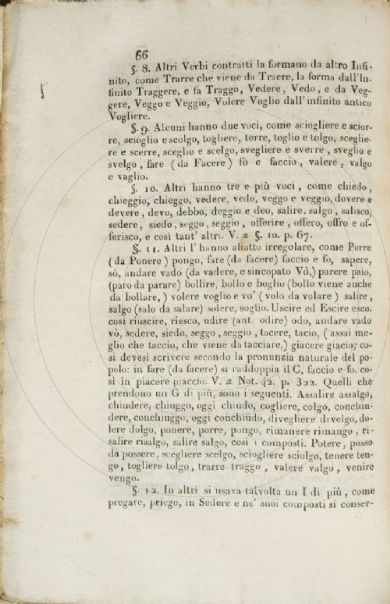 66
§. 8. Altri Verbi contratti la formano da altro Infi-
nito, come Trarre che viene da Traere, la forma dall'In-
finito Traggere, e fa Traggo, Vedere, Vedo, e da Veg-
gere, Veggo e Veggio, Volere Voglio dall'infinito antico
Vogliere.
§. 9. Alcuni hanno due voci, come sciogliere e scior-
re, scioglio e scolgo, togliere, torre, toglio e tolgo, sceglie-
re e scerre, sceglio e scelgo, svegliere e sverre, sveglio e
svelgo, fare (da Facere) fò e faccio, valere, valgo
e vaglio.
§. 10. Altri hanno tre e più voci, come chiedo,
chieggio, chieggo, vedere, vedo, veggo e veggio, dovere e
devere, devo, debbo, deggio e deo, salire, salgo, salisco,
sedere, siedo, seggo, seggio, offerire, offero, offro e of-
ferisco, e così tant' altri. V. 2 §. 10. p. 67.
§. 11. Altri l' hanno affatto irregolare, come Porre
(da Ponere) pongo, fare (da facere) faccio e fo, sapere,
sò, andare vado (da vadere, e sincopato Vò,) parere paio,
(paro da parare) bollire, bollo e boglio (bollo viene anche
da bollare,) volere voglio e vo' (volo da volare) salire,
salgo (salo da salare) solere, soglio. Uscire ed Escire esco.
così riuscire, riesco, udire (ant. odire) odo, andare vado
vò, sedere, siedo, seggo, seggio, tacere, tacio, (assai me-
glio che taccio, che viene da tacciare,) giacere giacio; co-
sì devesi scrivere secondo la pronunzia naturale del po-
polo: in fare (da facere) si raddoppia il C, faccio e fo. co-
sì in piacere piaccio. V. 2 Not. 42. p. 322. Quelli che
prendono un G di più, sono i seguenti. Assalire assalgo,
chiudere, chiuggo, oggi chiudo, cogliere, colgo, conchiu-
dere, conchiuggo, oggi conchiudo, divegliere divelgo, do-
lere dolgo, ponere, porre, pongo, rimanere rimango, ri-
salire risalgo, salire salgo, così i composti. Potere, posso
da possere, scegliere scelgo, sciogliere sciolgo, tenere ten-
go, togliere tolgo, trarre traggo, valere valgo, venire
vengo.
§. 12. In altri si usava talvolta un I di più, come
pregare, priego, in Sedere e ne' suoi composti si conser-